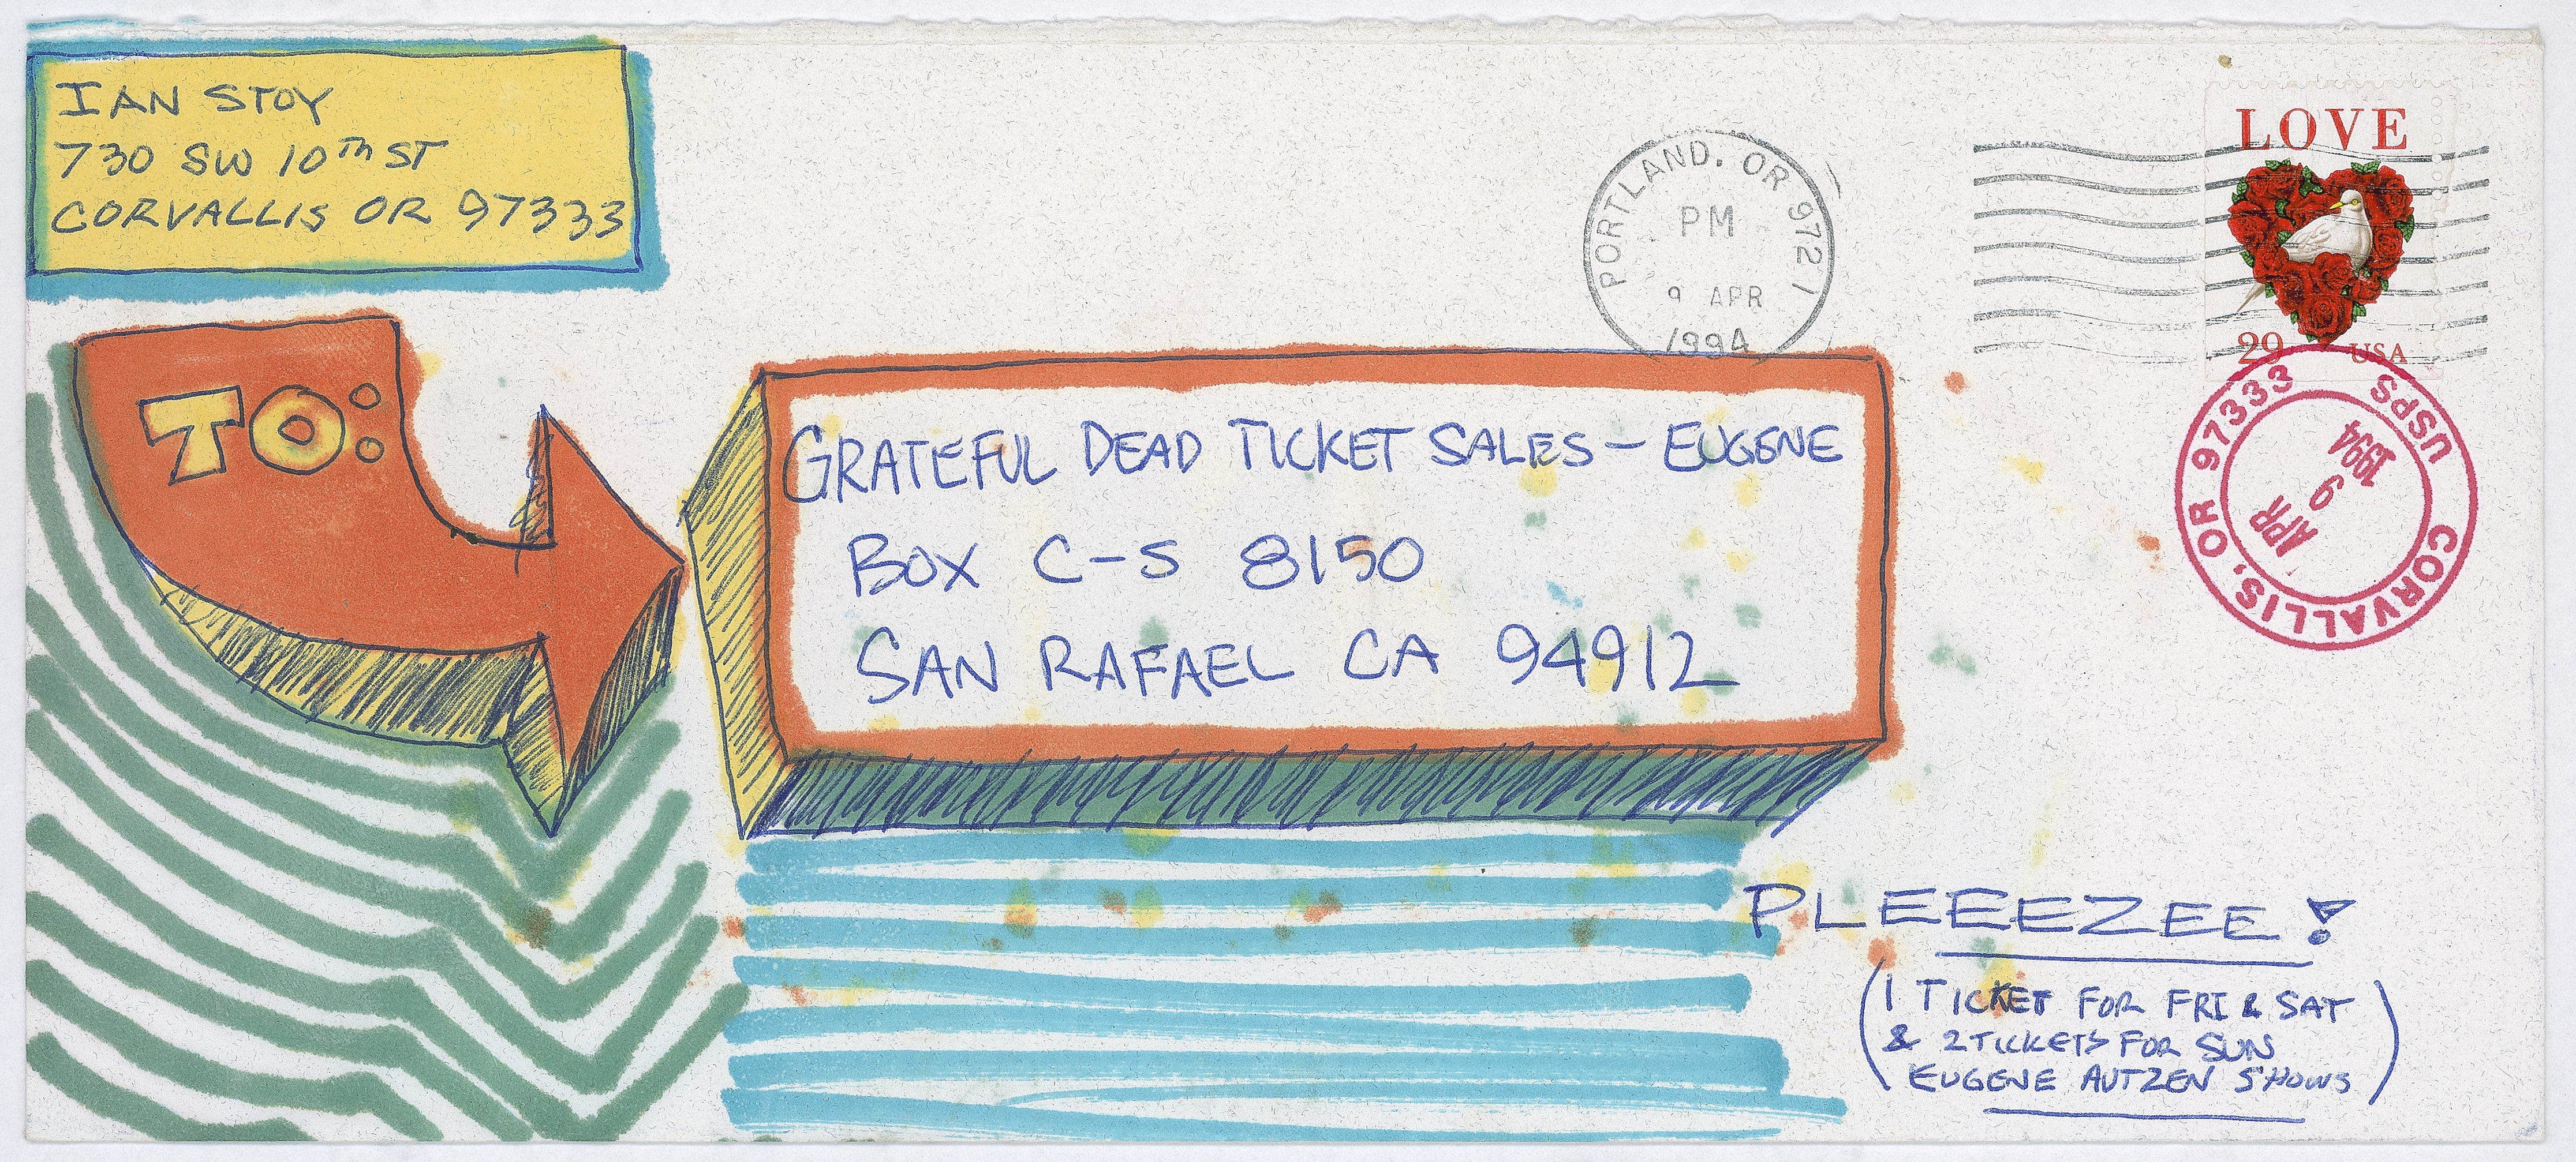 IAN STOY
730 SW 10TH ST
CORVALLIS OR 97333
TO:
GRATEFUL DEAD TICKET SALES - EUGENE
BOX C-S 8150
SAN RAFAEL CA 94912
PORTLAND, OR 972
PM
9 APR
1994
LOVE
29 USA
CORVALLIS, OR 97333
USPS
APR
9
1994
PLEEEZEE!
(1 TICKET FOR FRI & SAT
& 2 TICKETS FOR SUN
EUGENE AUTZEN SHOWS)